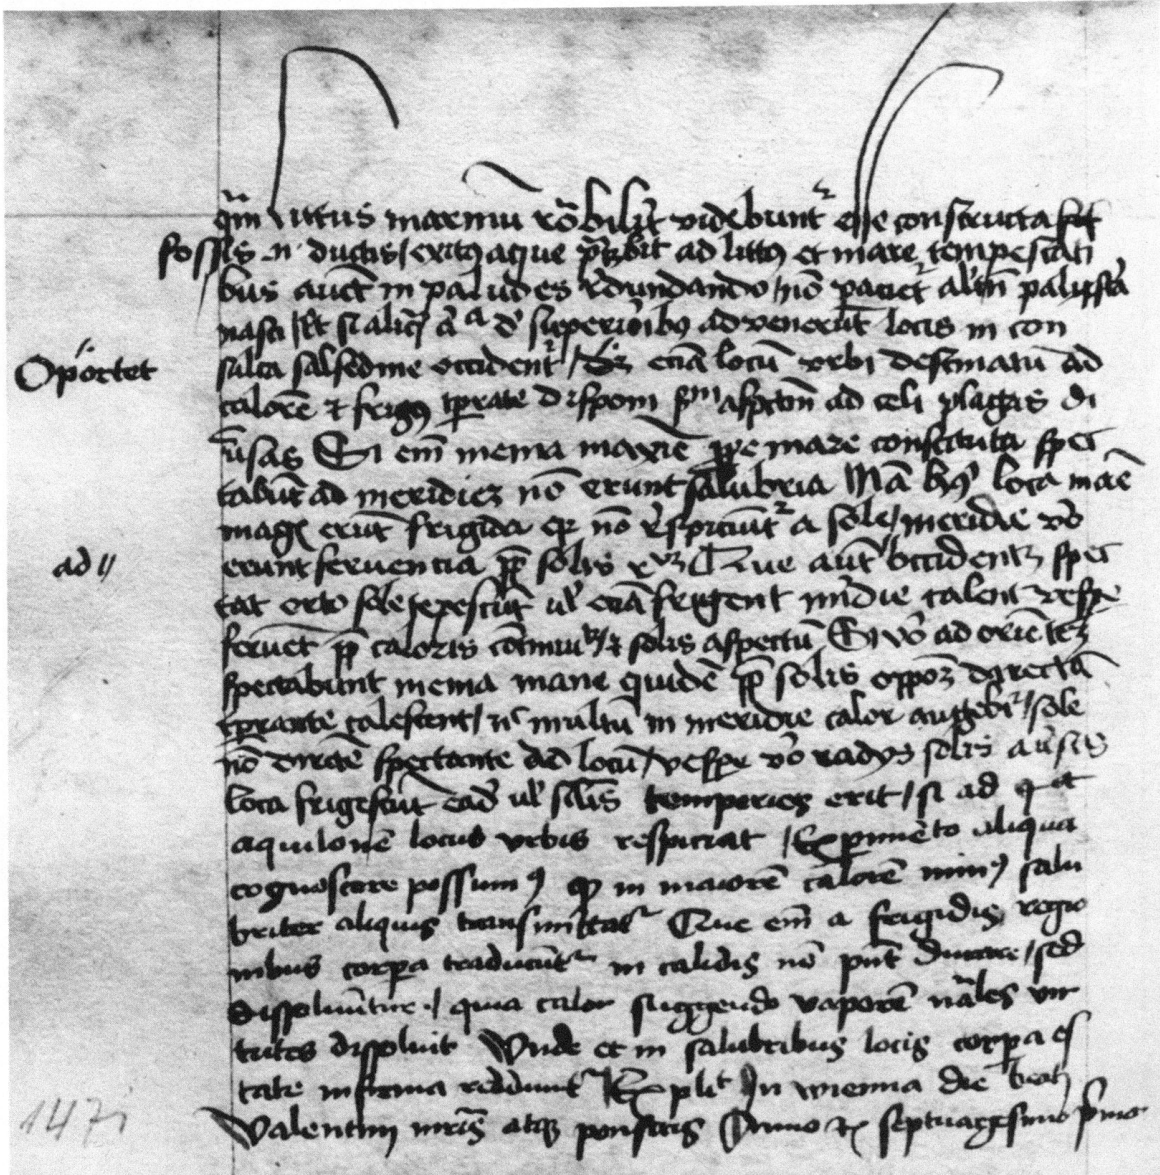 qm̄ littus maximū rōbilit̄ videbunt᷑ esse constructa si
fossis .n. ductis / exitꝰ aque p̄bꝫbit ad littꝰ et mare tempestati
bus auct̄ in paludes r̄dundando / nō paciet᷑ al̄ia palustr̄ia
nasci / Et si aliq̄ a͞ia de superioribꝰ advenerūt locis in con
Oportet
sulta salsedine occident᷑ / eciā locū vrbi destinatū ad
calorē ⁊ frigꝰ tꝑate disponi s͞m aspctm̄ ad celi plagas di
ūsas Si em̄ menia maxīe ꝓpe mare constituta spec
tabūt ad meridiez nō erunt salubria Nā hꝰꝰ loca manē
magꝭ erūt frigida qꝛ nō r̄spiciūt᷑ a sole / meridie v̄o
ad
erunt ferventia ꝓp̄ solis Que aūt occidentꝫ spec
tāt orto sole tepescūt vl̓ eciā frigent m̄idie calent vesꝑe
fervēt ꝓp̄ caloris cōtinui ⁊ solis aspectū Si v̄o ad oriētez
spectabunt menia mane quidē ꝓp̄ solis oppoꝫ directā
tꝑante calescent / nc̄ multū in meridie calor augebit᷑ / sole
nō directē spectante ad locū / vesꝑe v̄o radijs solis av̄sis
loca frigescūt eadē vl̓ sil̄is temperies erit / si ad
aquilonē locus vrbis respiciat / Exꝑimēto aliqua
cognoscere possumꝰ qꝙ in maiorē calorē minꝰ salu
briter aliquis transmittat᷑ Que em̄ a frigidis regio
nibus corꝑa traducūt᷑ in calidis nō pn̄t durare / sed
dissolvūtur / quia calor suggendo vaporē nāles vir
tutes dissolvit Vnde et in salubribus locis corꝑa es
tate infirma reddunt᷑ Explic̄ In wienna die beati
Valentini mr̄is atqꝫ pontificis Anno ⁊c septuagesimo pͥmo
1471